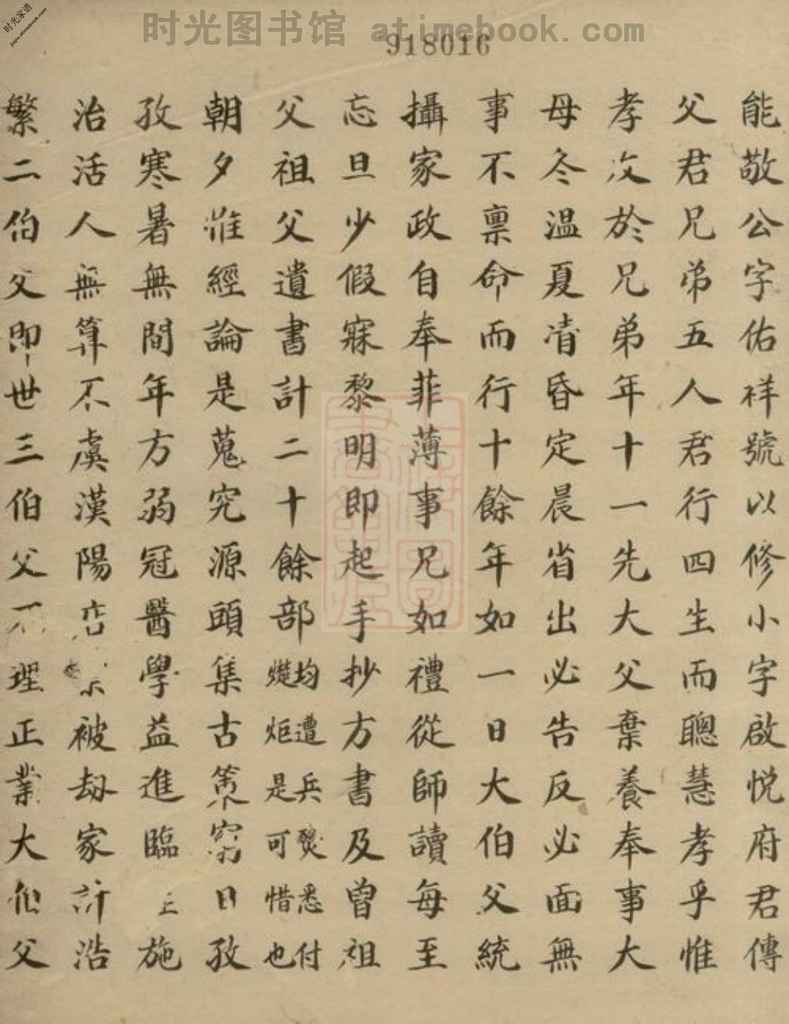 时光图书馆 atimebook.com
918016
能敬公字佑祥號以修小字啟悦府君傳
父君兄弟五人君行四生而聰慧孝乎惟
孝次於兄弟年十一先大父棄養奉事大
母冬温夏凊昏定晨省出必告反必面無
事不禀命而行十餘年如一日大伯父統
攝家政自奉菲薄事兄如禮從師讀每至
忘旦少假寐黎明即起手抄方書及曾祖
父祖父遺書計二十餘部均遭兵燹悉付𤏡炬是可惜也
朝夕惟經論是蒐究源頭集古籌窮日孜
孜寒暑無間年方弱冠醫學益進臨症施
治活人無算不虞漢陽店業被劫家計浩
繁二伯父即世三伯父不理正業大伯父